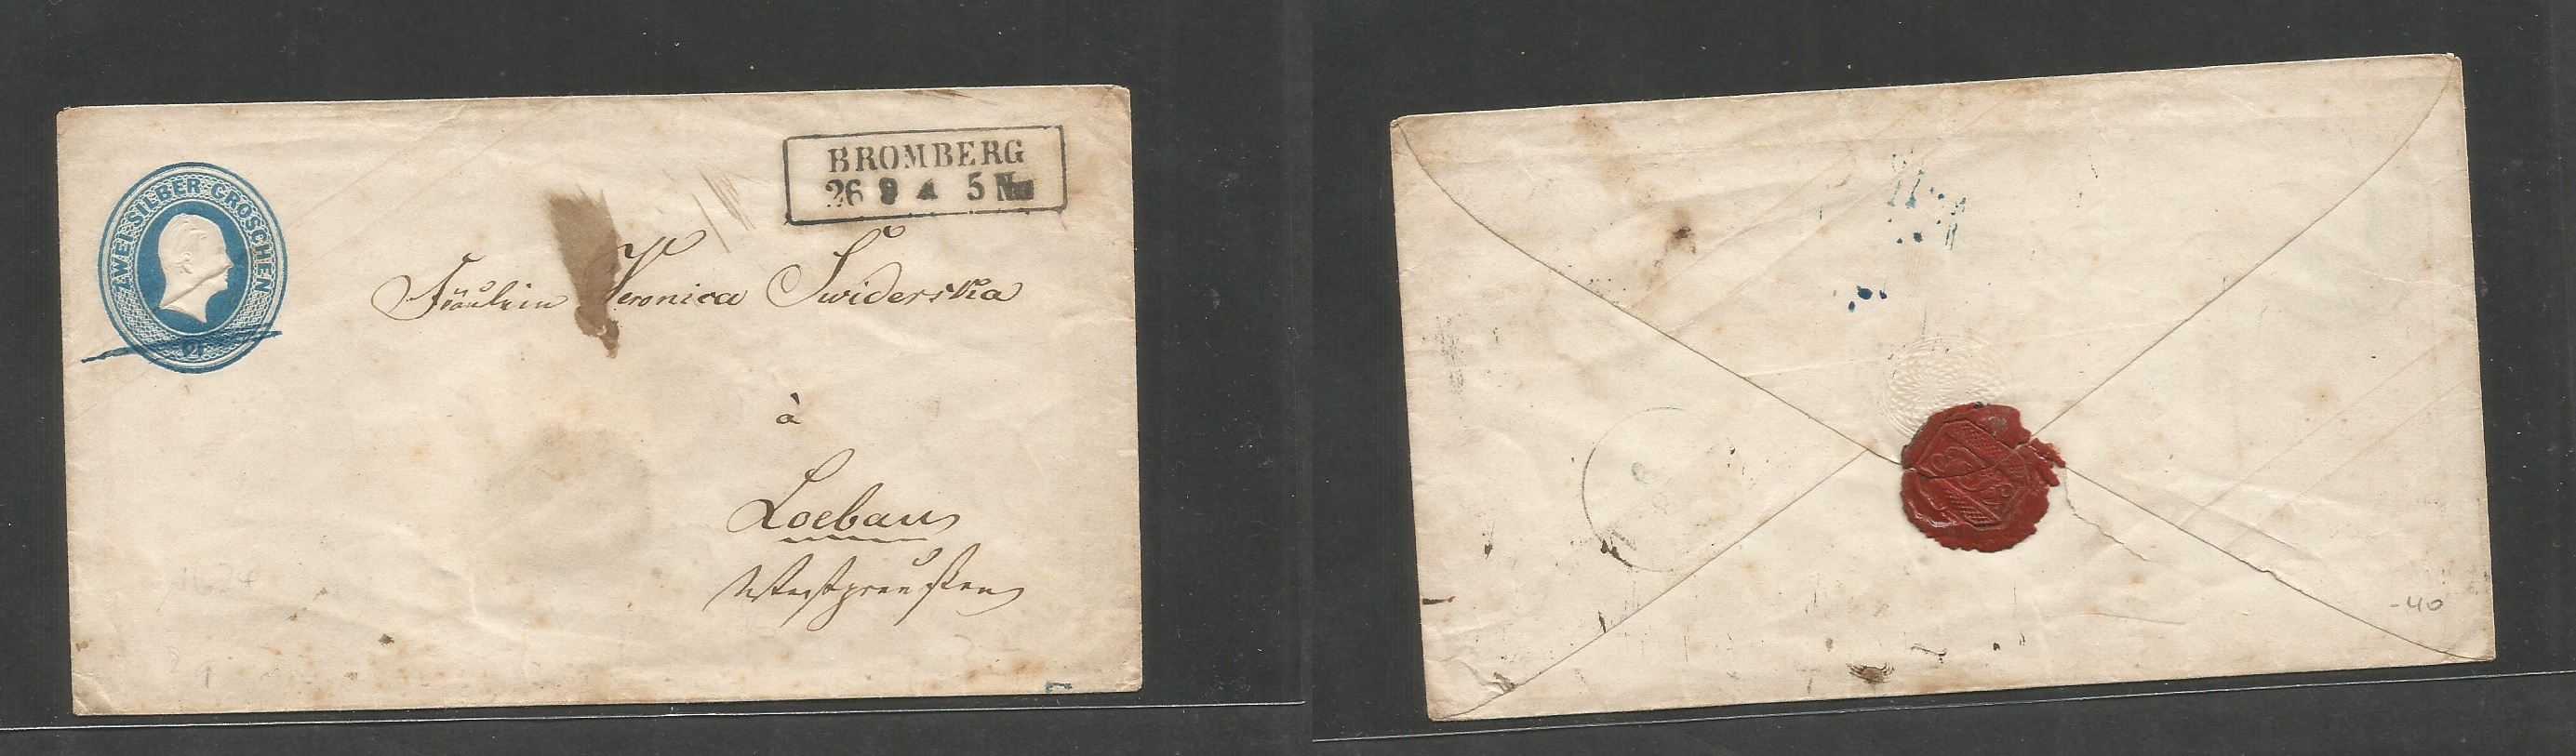 ZWEI SILBER GROSCHEN
2
BROMBERG
26 9 4 5 N
Fräulein Veronica Swiderska
à
Loebau
Westpreußen
-40